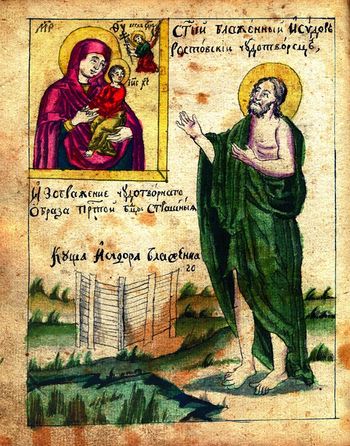 МР ѲУ
Стый блаженный Исудоръ
Ростовскій чудотворецъ,
ІИС ХС
Изображение чудотворнаго
Образа Пртой бцы Страшныя
Куща Исидора блаженна
го